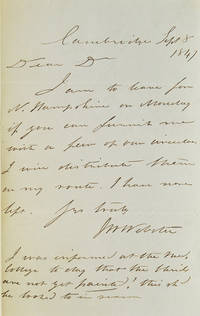 Cambridge Sept 8
1847
Dear D
I am to leave for
N. Hampshire on Monday
if you can furnish me
with a few of our circulars
I will distribute them
on my route. I have none
left. Yrs truly
JW Webster
I was informed at the Med.
College to day that the Chairs
are not yet painted! this shd
be looked to in season